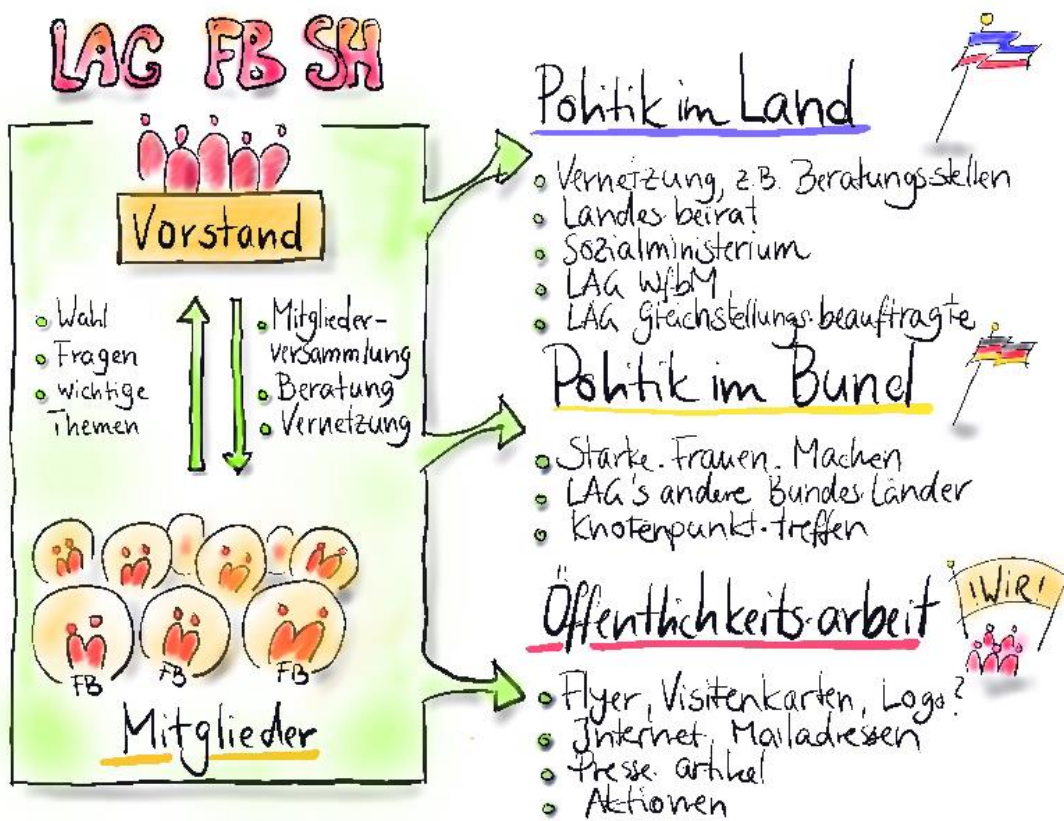 LAG FB SH
Vorstand
• Wahl
• Fragen
• wichtige
Themen
• Mitglieder-
versammlung
• Beratung
• Vernetzung
FB
FB
FB
Mitglieder
Politik im Land
• Vernetzung, z.B. Beratungs-stellen
• Landes-beirat
• Sozialministerium
• LAG WfbM
• LAG Gleichstellungs-beauftragte
Politik im Bund
• Starke.Frauen.Machen
• LAG's andere Bundes-Länder
• Knotenpunkt-treffen
Öffentlichkeits-arbeit
!WIR!
• Flyer, Visitenkarten, Logo?
• Internet, Mailadressen
• Presse-artikel
• Aktionen